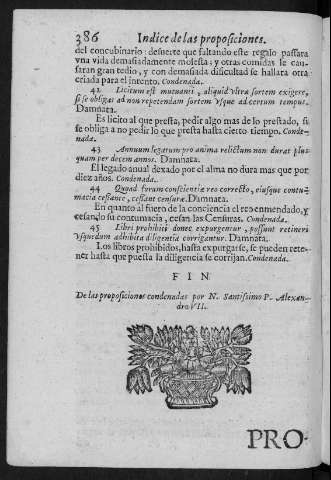 386 Indice de las proposiciones.
del concubinario: desuerte que faltando este regalo passara
vna vida demasiadamente molesta; y otras comidas le cau-
saran gran tedio, y con demasiada dificultad se hallara otra
criada para el intento. Condenada.
42 Licitum est mutuanti, aliquid vltra sortem exigere,
si se obligat ad non repetendam sortem vsque ad certum tempus.
Damnata.
Es licito al que presta, pedir algo mas de lo prestado, si
se obliga a no pedir lo que presta hasta cierto tiempo. Conde-
nada.
43 Annuum legatum pro anima relictum non durat plus-
quam per decem annos. Damnata.
El legado anual dexado por el alma no dura mas que por
diez años. Condenada.
44 Quoad forum conscientiæ reo correcto, eiusque contu-
macia cessante, cessant censuræ. Damnata.
En quanto al fuero de la conciencia el reo enmendado, y
cesando su contumacia, cesan las Censuras. Condenada.
45 Libri prohibiti donec expurgentur, possunt retineri
vsquedum adhibita diligentia corrigantur. Damnata.
Los libros prohibidos, hasta expurgarse, se pueden rete-
ner hasta que puesta la diligencia se corrijan. Condenada.
F I N
De las proposiciones condenadas por N. Santissimo P. Alexan-
dro VII.
PRO-